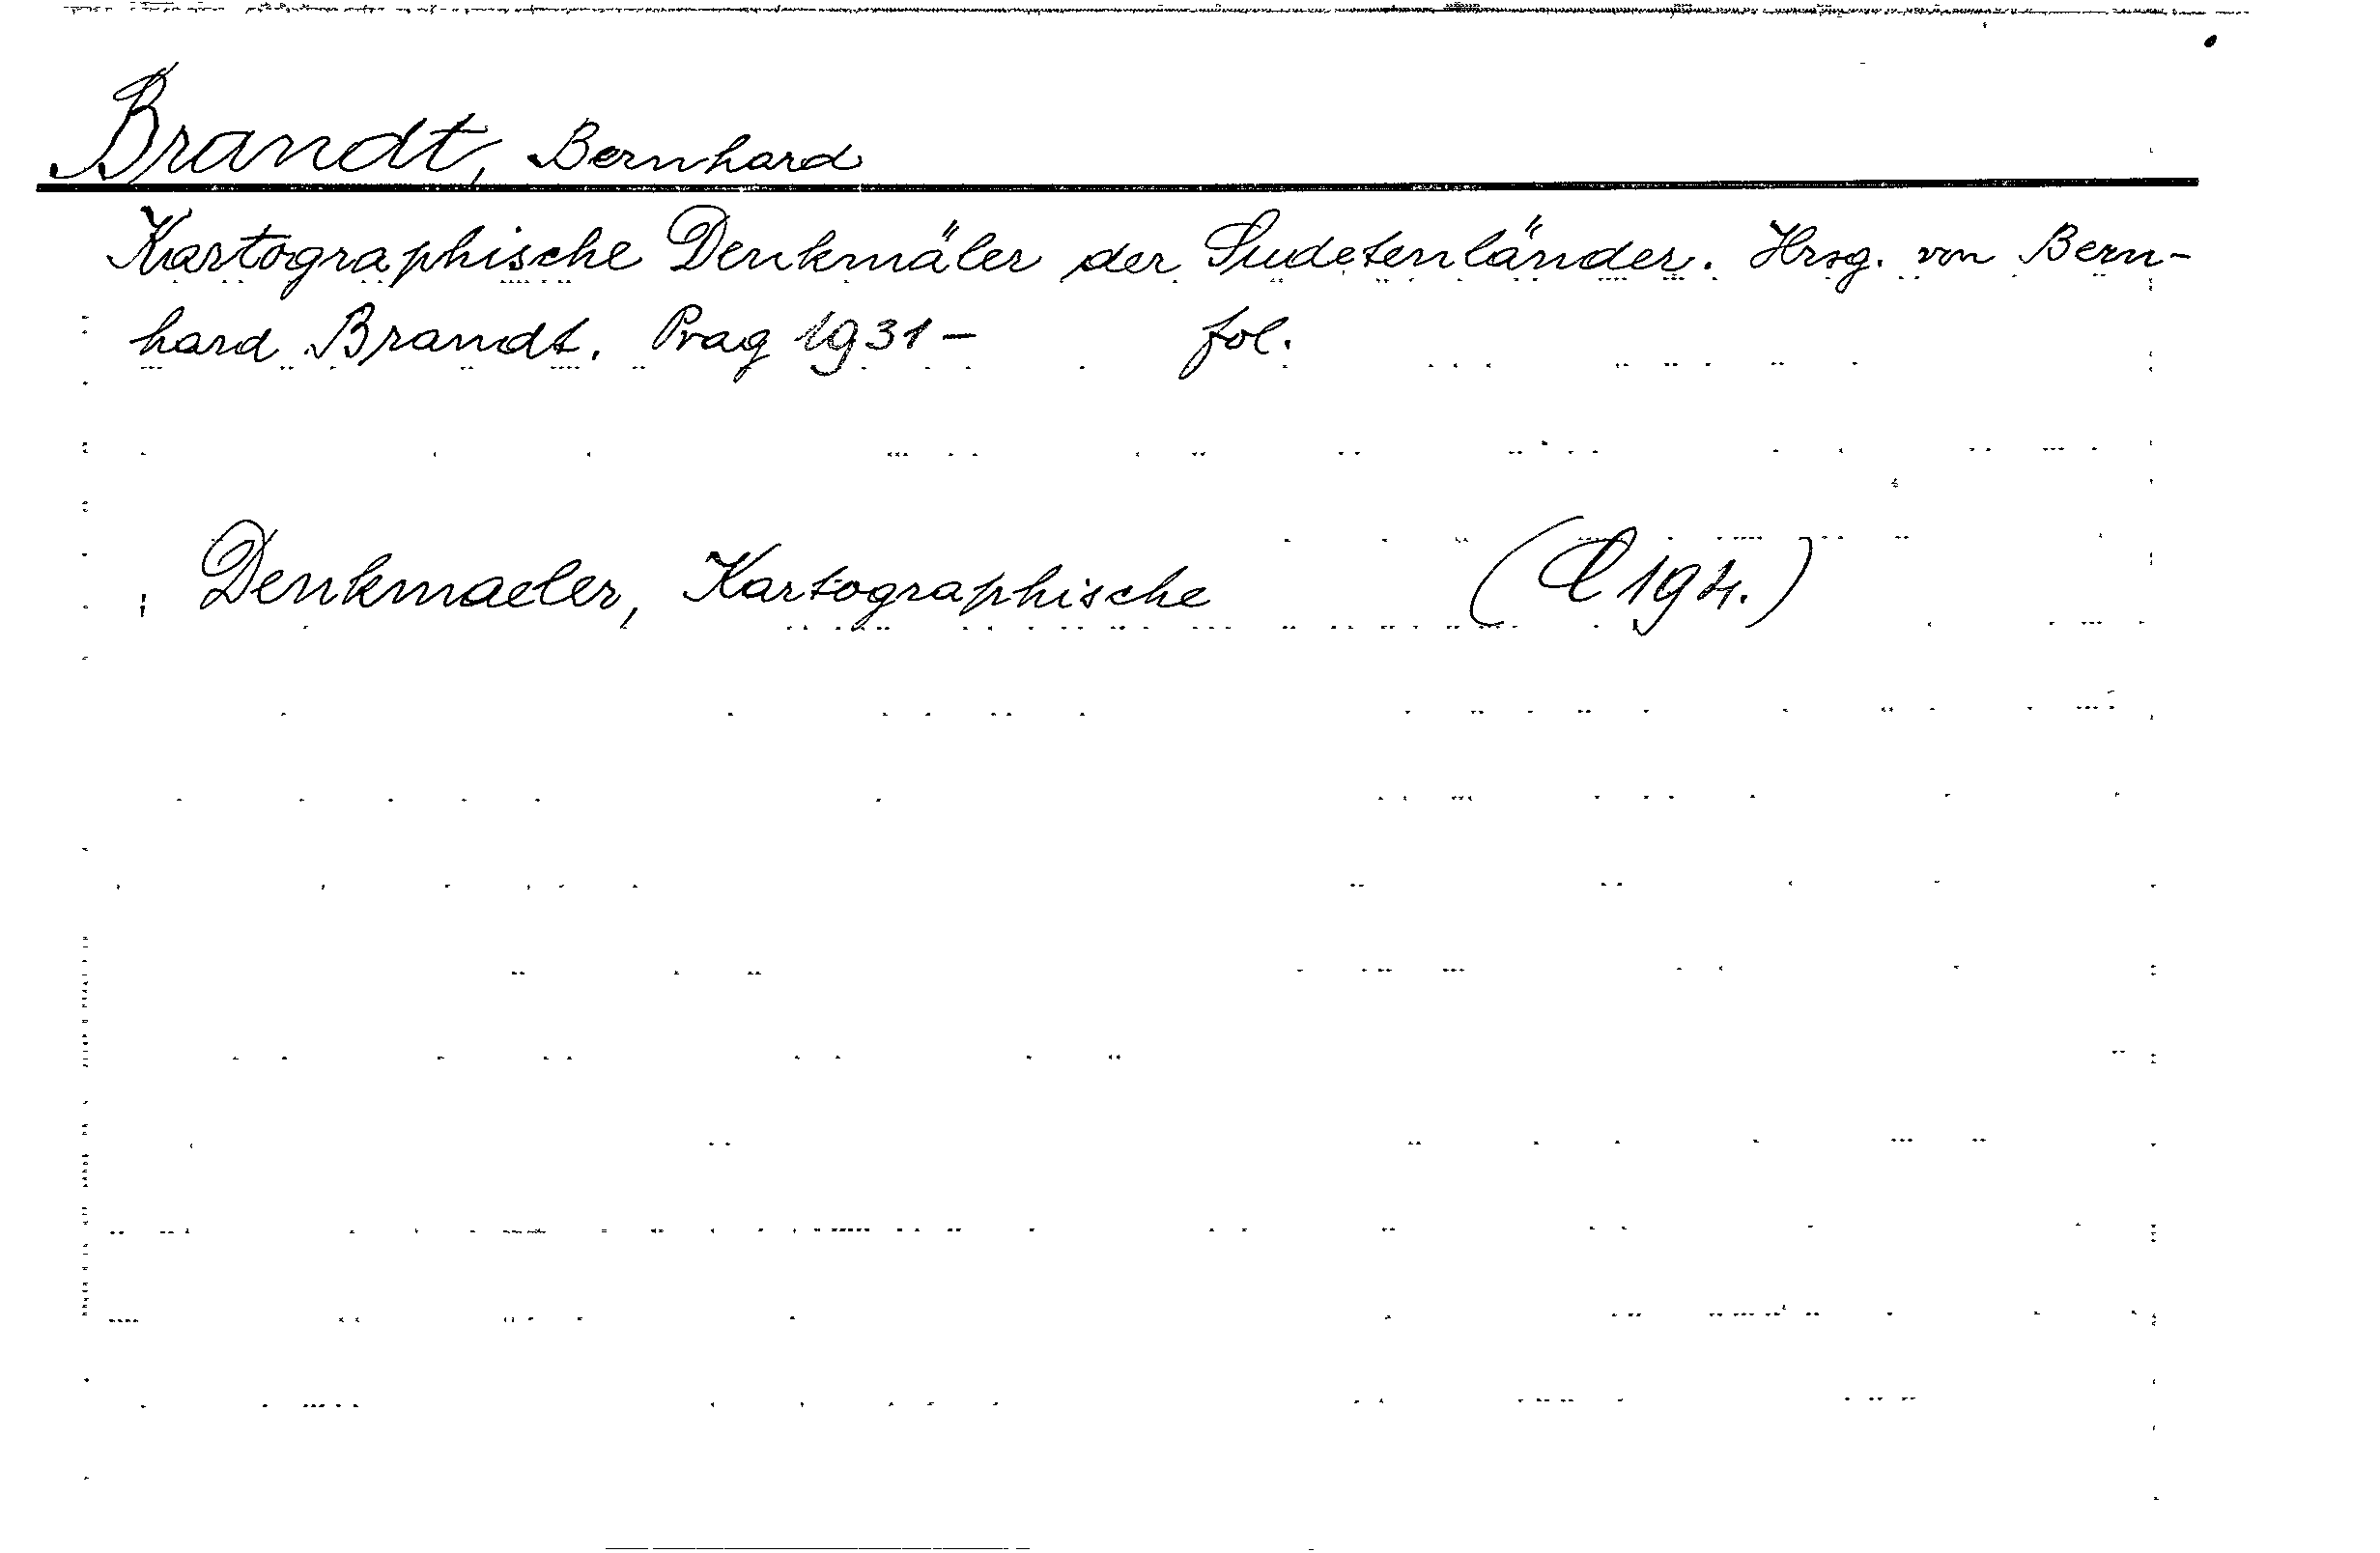 Brandt, Bernhard
Kartographische Denkmäler der Sudetenländer. Hrsg. von Bern-
hard Brandt. Prag 1931- fol.
Denkmaeler, Kartographische